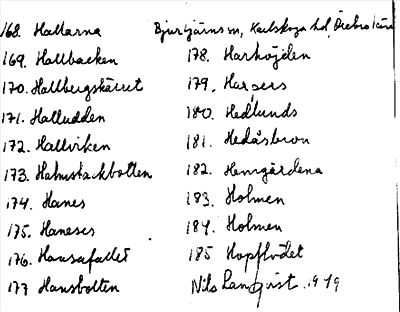 168. Hallarna Bjurtjärns sn, Karlskoga hd, Örebro län
169. Hallbacken
170. Hallbergskärret
171. Halludden
172. Hallviken
173. Halmstackbotten
174. Hanes
175. Haneses
176. Hansafallet
177 Hansbotten
178. Harhöjden
179. Harsers
180. Hedlunds
181. Hedåsbron
182. Hemgärdena
183. Holmen
184. Holmen
185 Hopflödet
Nils Lanqvist. 1919